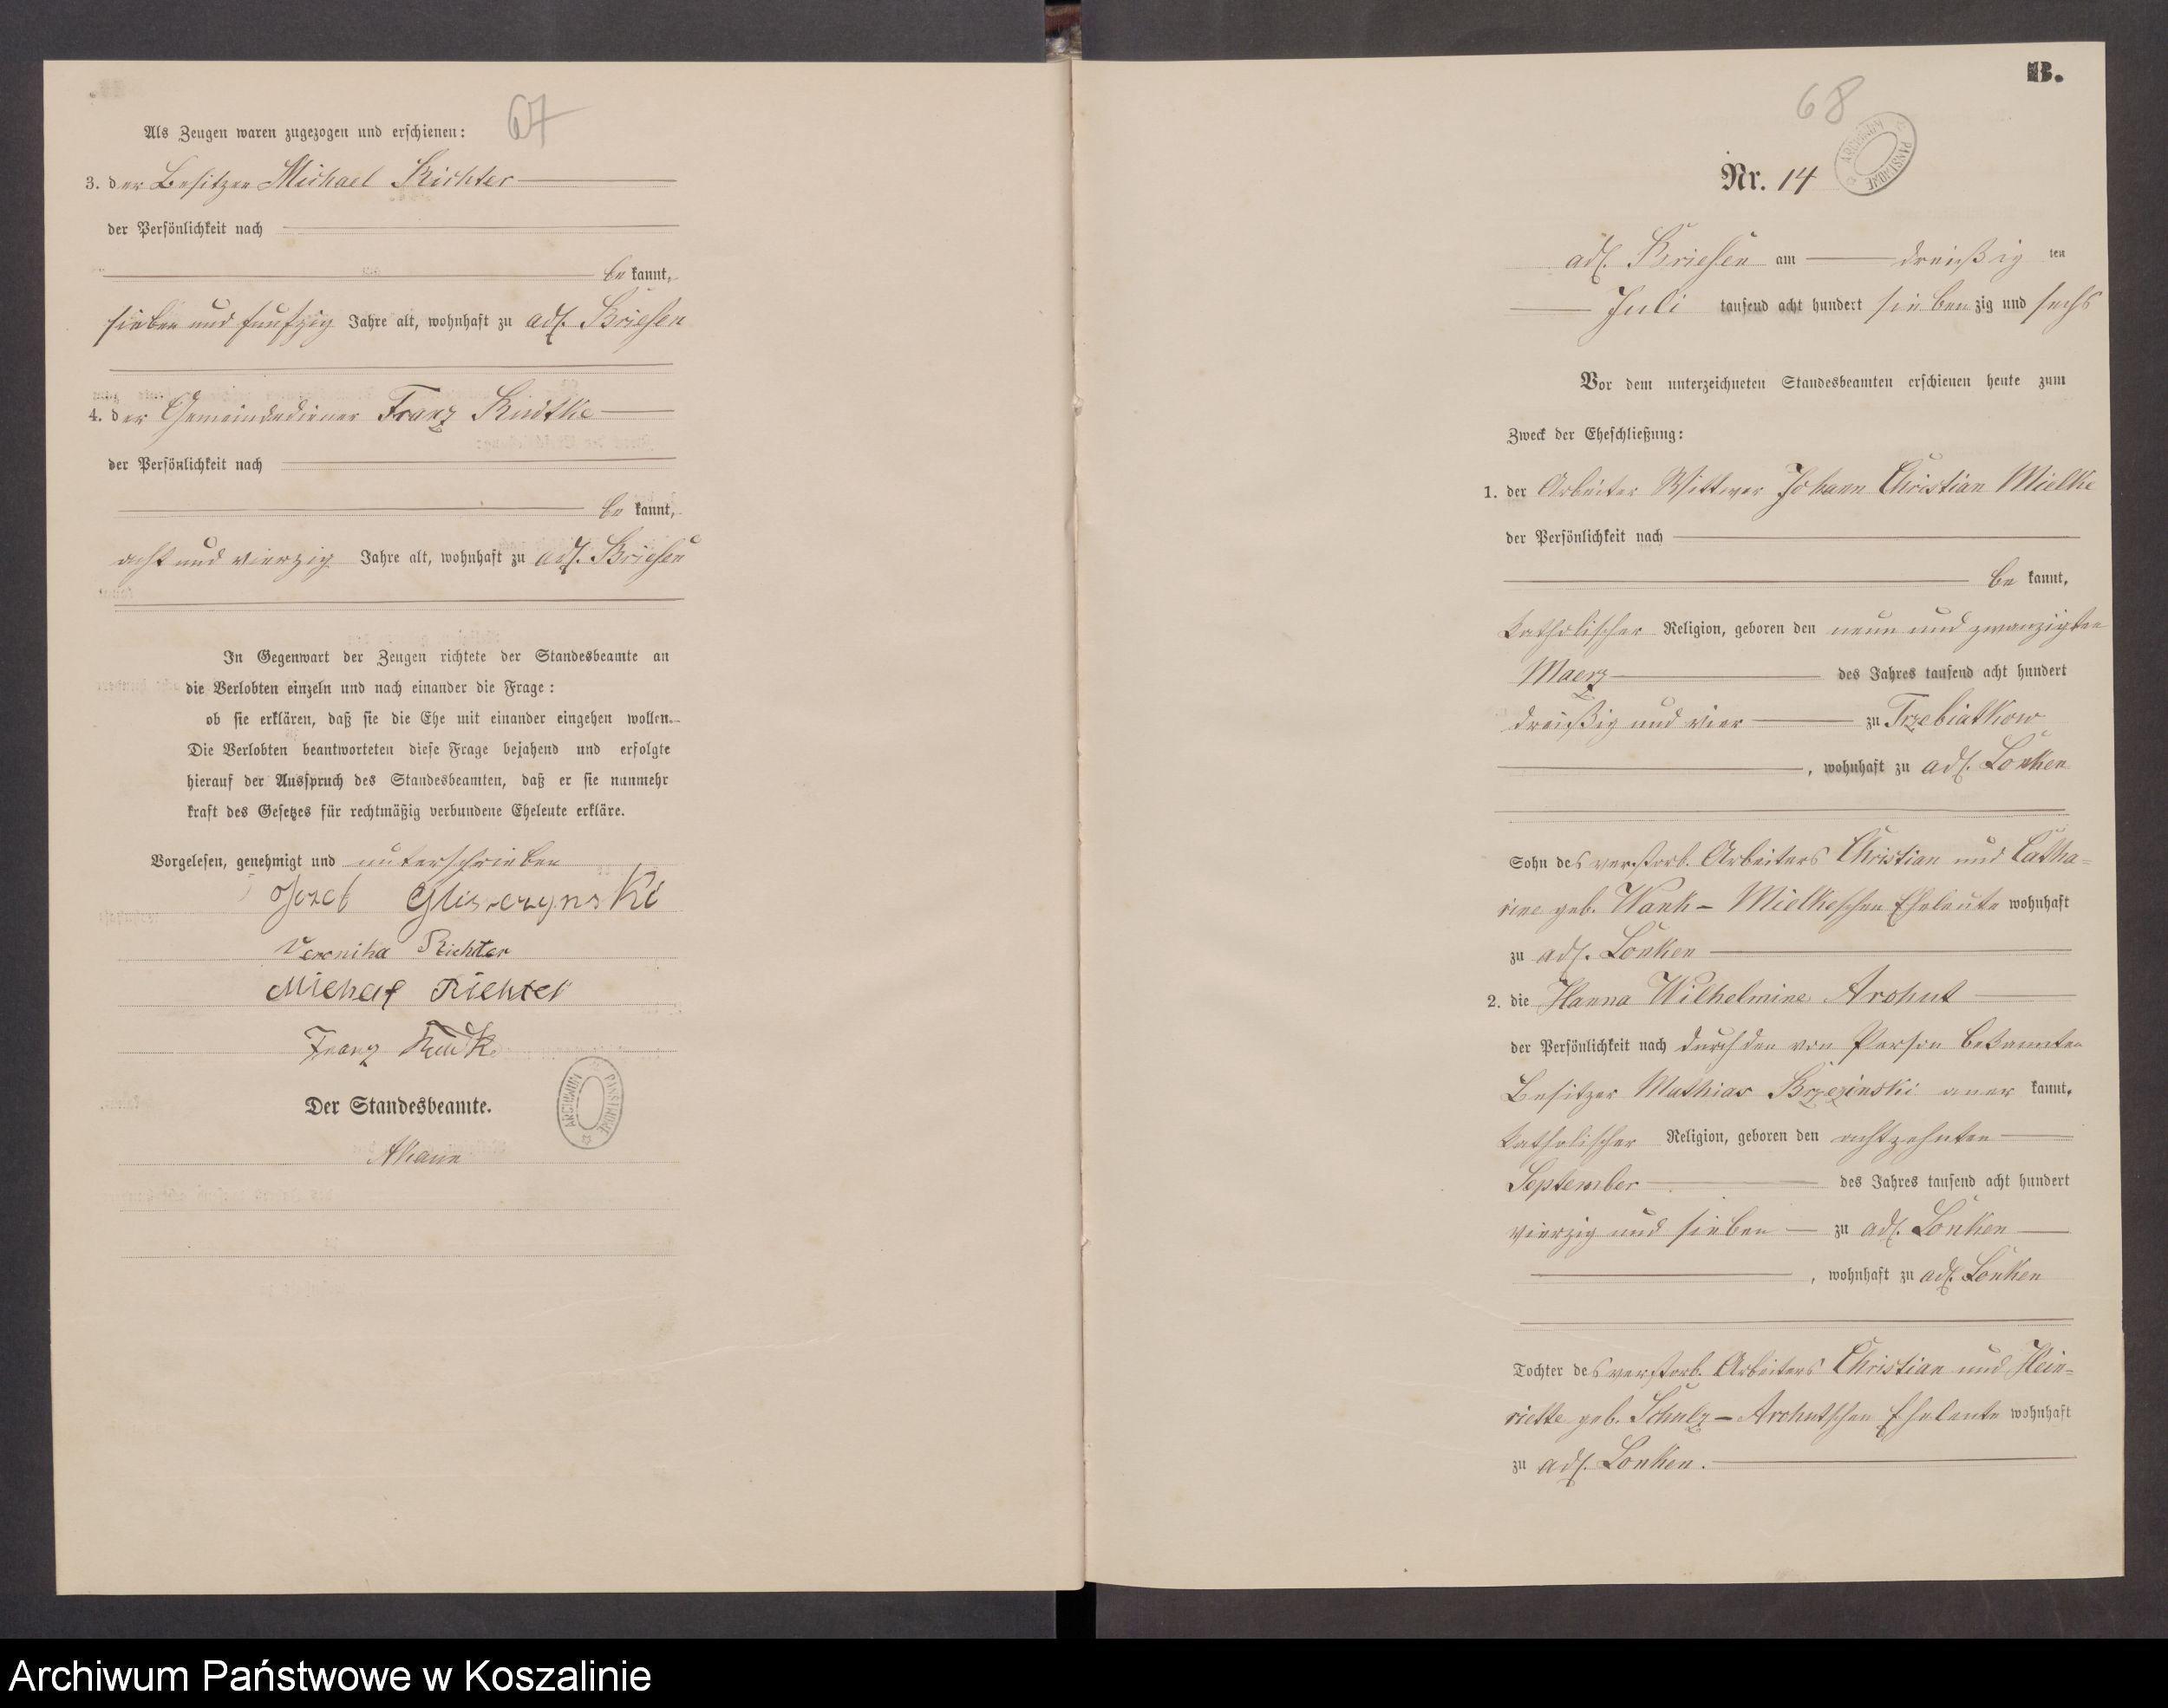 67
Als Zeugen waren zugezogen und erschienen:
3. der Besitzer Michael Richter
der Persönlichkeit nach
be kannt,
sieben und fünfzig Jahre alt, wohnhaft zu adl. Briesen
4. der Gemeindediener Franz Rudtke
der Persönlichkeit nach
be kannt,
acht und vierzig Jahre alt, wohnhaft zu adl. Briesen
In Gegenwart der Zeugen richtete der Standesbeamte an
die Verlobten einzeln und nach einander die Frage:
ob sie erklären, daß sie die Ehe mit einander eingehen wollen.
Die Verlobten beantworteten diese Frage bejahend und erfolgte
hierauf der Ausspruch des Standesbeamten, daß er sie nunmehr
kraft des Gesetzes für rechtmäßig verbundene Eheleute erkläre.
Vorgelesen, genehmigt und unterschrieben
Jozef
Veronika Richter
Michael Richter
Franz
Der Standesbeamte.
ARCHIWUM PAŃSTWOWE
B.
68
ARCHIWUM PAŃSTWOWE
Nr. 14
adl. Briesen am dreißig ten
Juli tausend acht hundert sieben zig und sechs
Vor dem unterzeichneten Standesbeamten erschienen heute zum
Zweck der Eheschließung:
1. der Arbeiter Wittwer Johann Christian Mielke
der Persönlichkeit nach
be kannt,
katholischer Religion, geboren den neun und zwanzigten
Maerz des Jahres tausend acht hundert
dreißig und vier zu Trzebiatkow
, wohnhaft zu adl. Lonken
Sohn des verstorb. Arbeiters Christian und Catha=
rine geb. Wank - Mielkeschen Eheleute wohnhaft
zu adl. Lonken
2. die Hanna Wilhelmine Arohut
der Persönlichkeit nach durch den von Person bekannten
Besitzer Mathias Brzezinski aner kannt,
katholischer Religion, geboren den achtzehnten
September des Jahres tausend acht hundert
vierzig und sieben zu adl. Lonken
, wohnhaft zu adl. Lonken
Tochter des verstorb. Arbeiters Christian und Hein=
riette geb. Schulz - Arohutschen Eheleute wohnhaft
zu adl. Lonken.
Archiwum Państwowe w Koszalinie